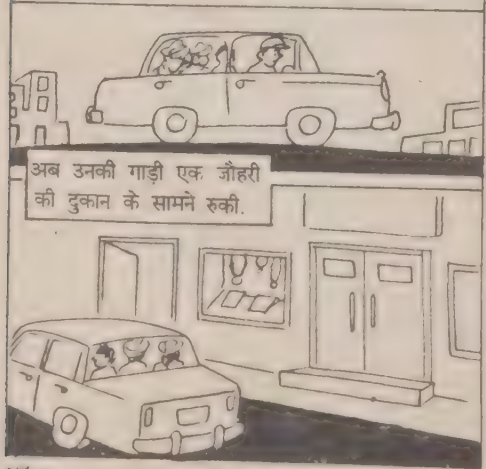 अब उनकी गाड़ी एक जौहरी
की दुकान के सामने रुकी.